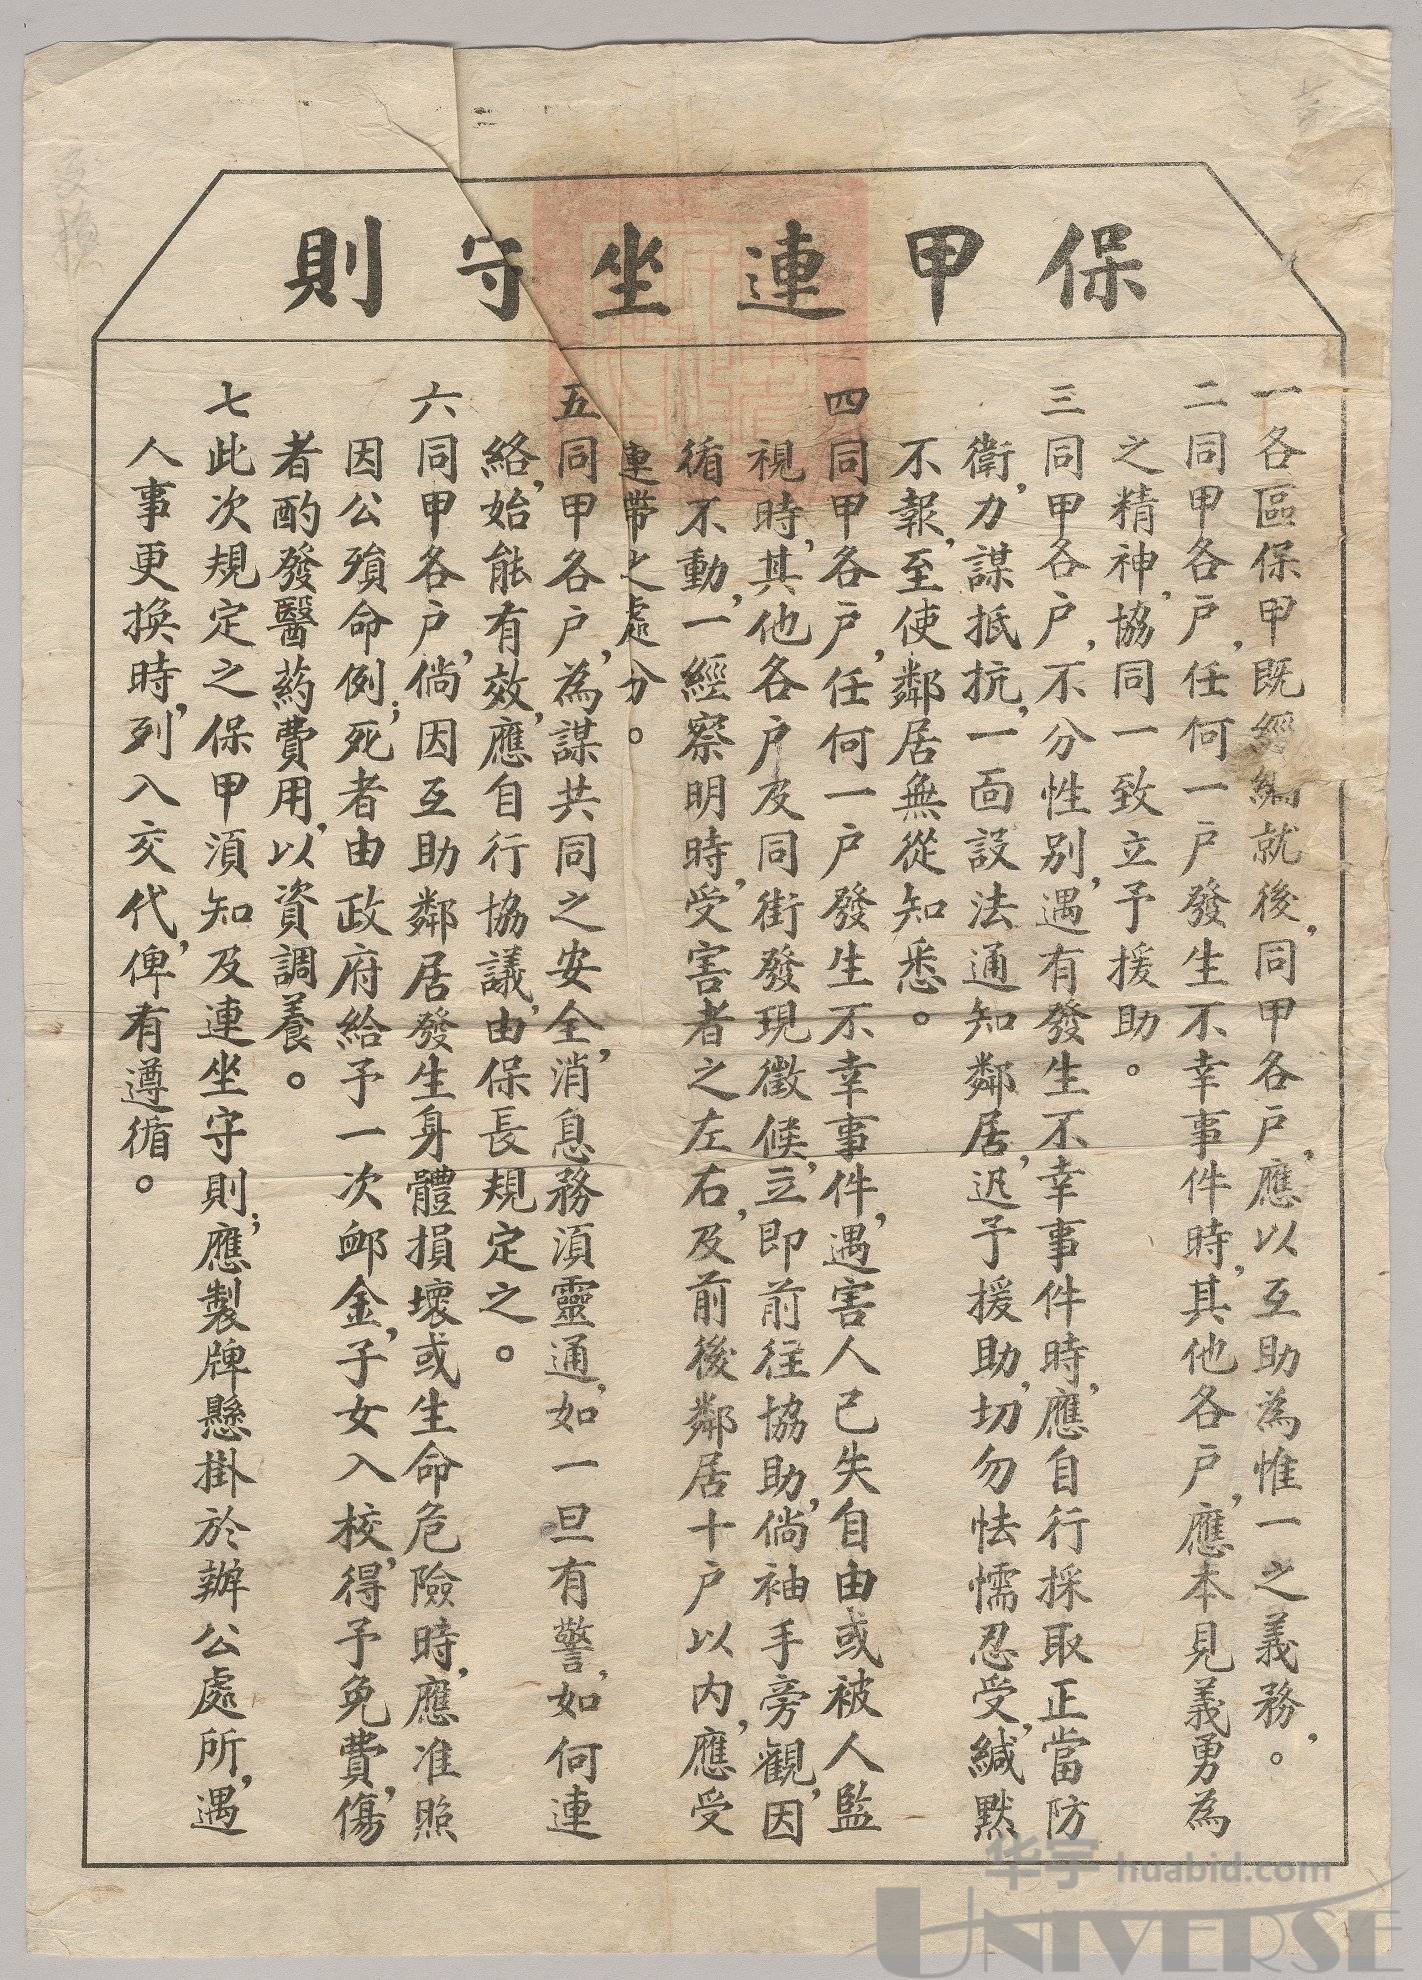 保甲連坐守則
一各區保甲既經編就後，同甲各户，應以互助為惟一之義務，。
二同甲各户，任何一户發生不幸事件時，其他各户，應本見義勇為
之精神，協同一致立予援助。
三同甲各户，不分性别，遇有發生不幸事件時，應自行採取正當防
衛，力謀抵抗，一面設法通知鄰居，迅予援助，切勿怯懦忍受，緘默
不報，至使鄰居無從知悉。
四同甲各户，任何一户發生不幸事件，遇害人已失自由或被人監
視時，其他各户及同街發現徵候，立即前往協助，倘袖手旁觀，因
循不動，一經察明時，受害者之左右，及前後鄰居十户以内，應受
連帶之處分。
五同甲各户，為謀共同之安全，消息務須靈通，如一旦有警，如何連
絡，始能有效，應自行協議，由保長規定之。
六同甲各户，倘因互助鄰居發生身體損壞或生命危險時，應准照
因公殞命例；死者由政府給予一次卹金，子女入校，得予免費，傷
者酌發醫葯費用，以資調養。
七此次規定之保甲須知及連坐守則；應製牌懸掛於辦公處所，遇
人事更换時，列入交代，俾有遵循。
华宇 huabid.com
UNIVERSE